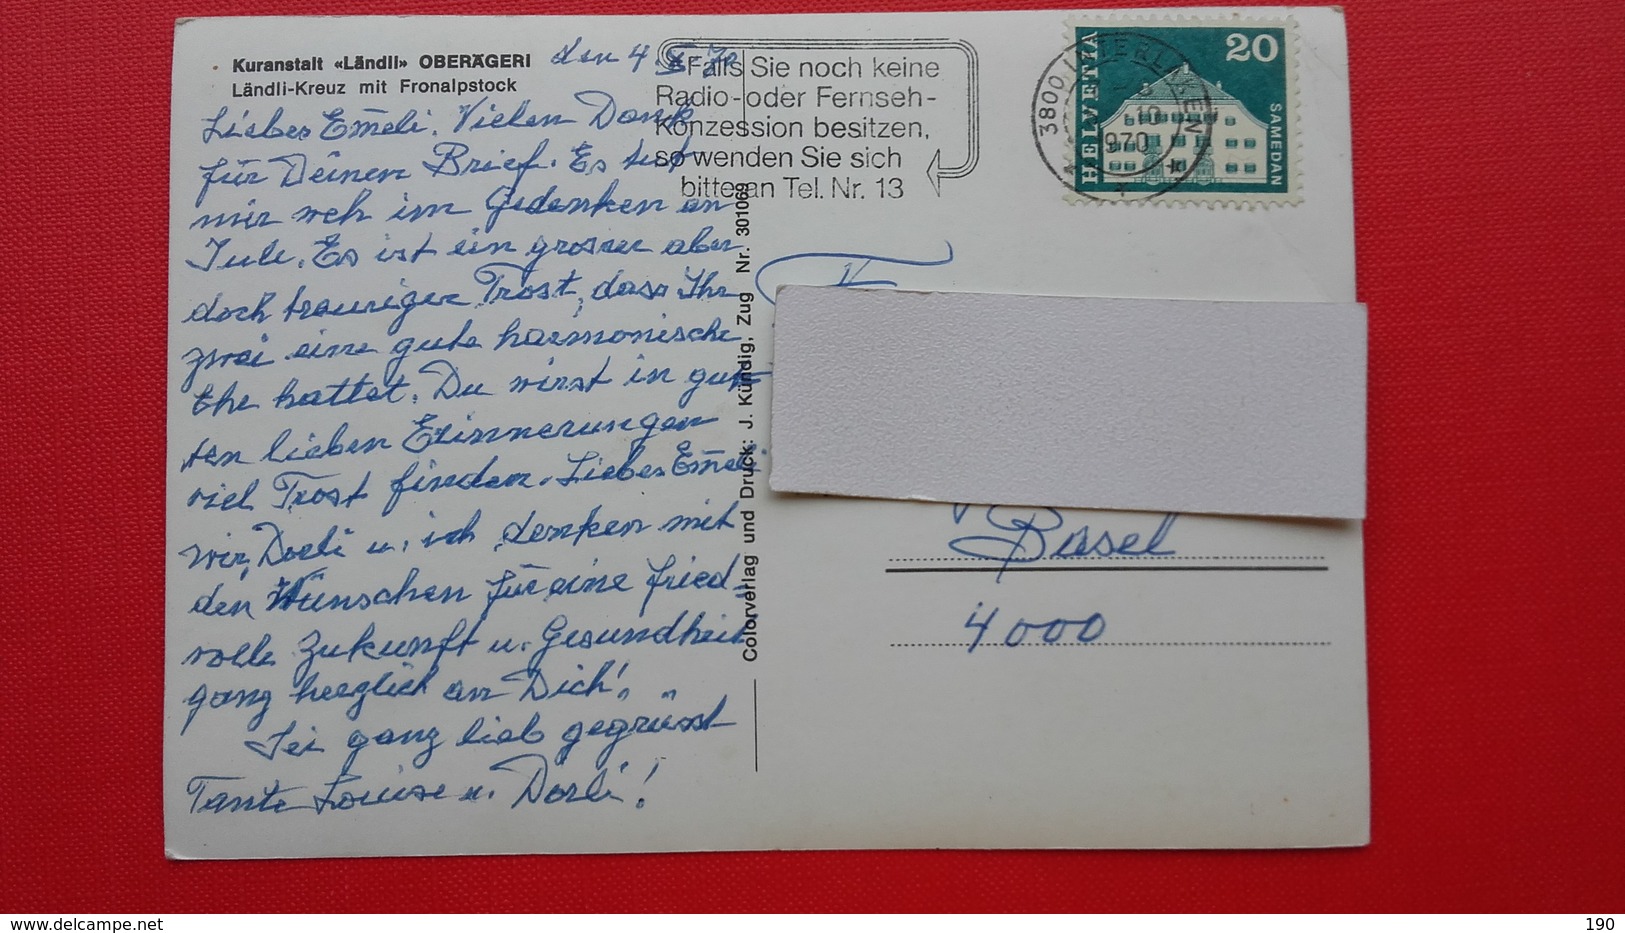 Kuranstalt «Ländli» OBERÄGERI
Ländli-Kreuz mit Fronalpstock
den 4. X. 70
Liebes Emeli. Vielen Dank
für Deinen Brief. Es tut
mir weh im Gedenken an
Jule. Es ist ein grosser aber
doch trauriger Trost, dass Ihr
zwei eine gute harmonische
Ehe hattet. Du wirst in gu-
ten lieben Erinnerungen
viel Trost finden. Liebes Emeli
wir, Dorli u. ich denken mit
den Wünschen für eine fried-
volle Zukunft u. Gesundheit
ganz herzlich an Dich!
Sei ganz lieb gegrüsst
Tante Louise u. Dorli!
Falls Sie noch keine
Radio-oder Fernseh-
Konzession besitzen,
so wenden Sie sich
bitte an Tel. Nr. 13
3800 INTERLAKEN
10
1970
HELVETIA
20
SAMEDAN
Colorverlag und Druck: J. Kündig, Zug Nr. 301069
Basel
4000
190